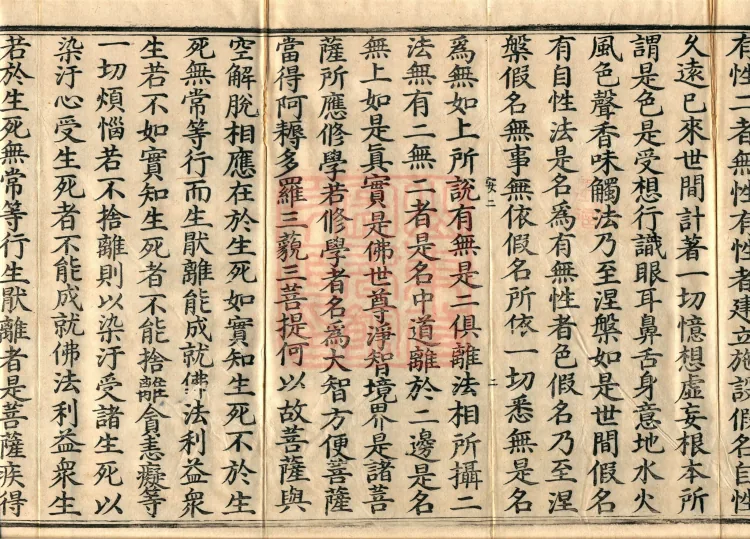 有性二者無性有性者建立施設假名自性
久遠已來世間計著一切憶想虛妄根本所
謂是色是受想行識眼耳鼻舌身意地水火
風色聲香味觸法乃至涅槃如是世間假名
有自性法是名爲有無性者色假名乃至涅
槃假名無事無依假名所依一切悉無是名
爲無如上所說有無是二俱離法相所攝二
法無有二無二者是名中道離於二邊是名
無上如是眞實是佛世尊淨智境界是諸菩
薩所應修學若修學者名爲大智方便菩薩
當得阿耨多羅三藐三菩提何以故菩薩與
空解脫相應在於生死如實知生死不於生
死無常等行而生厭離能成就佛法利益衆
生若不如實知生死者不能捨離貪恚癡等
一切煩惱若不捨離則以染汙受諸生死以
染汙心受生死者不能成就佛法利益衆生
若於生死無常等行生厭離者是菩薩疾得